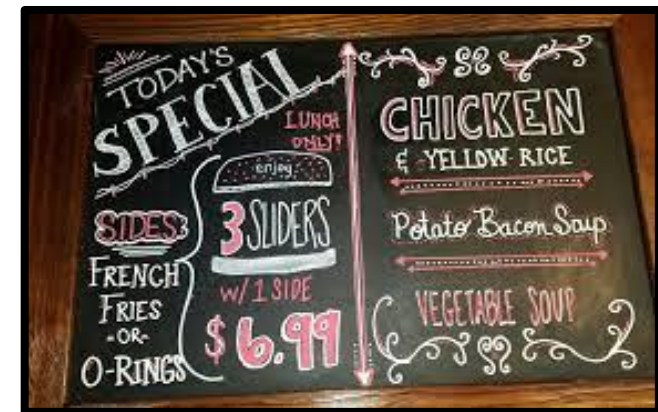 TODAY'S
SPECIAL
LUNCH
ONLY!
enjoy
3 SLIDERS
W/ 1 SIDE
$6.99
SIDES
FRENCH
FRIES
-OR-
O-RINGS
CHICKEN
& YELLOW RICE
Potato Bacon Soup
VEGETABLE SOUP